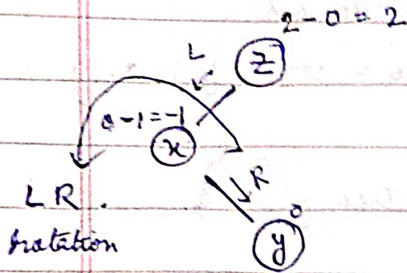 2 - 0 = 2
L
Z
0 - 1 = -1
x
R
LR.
rotation
0
y